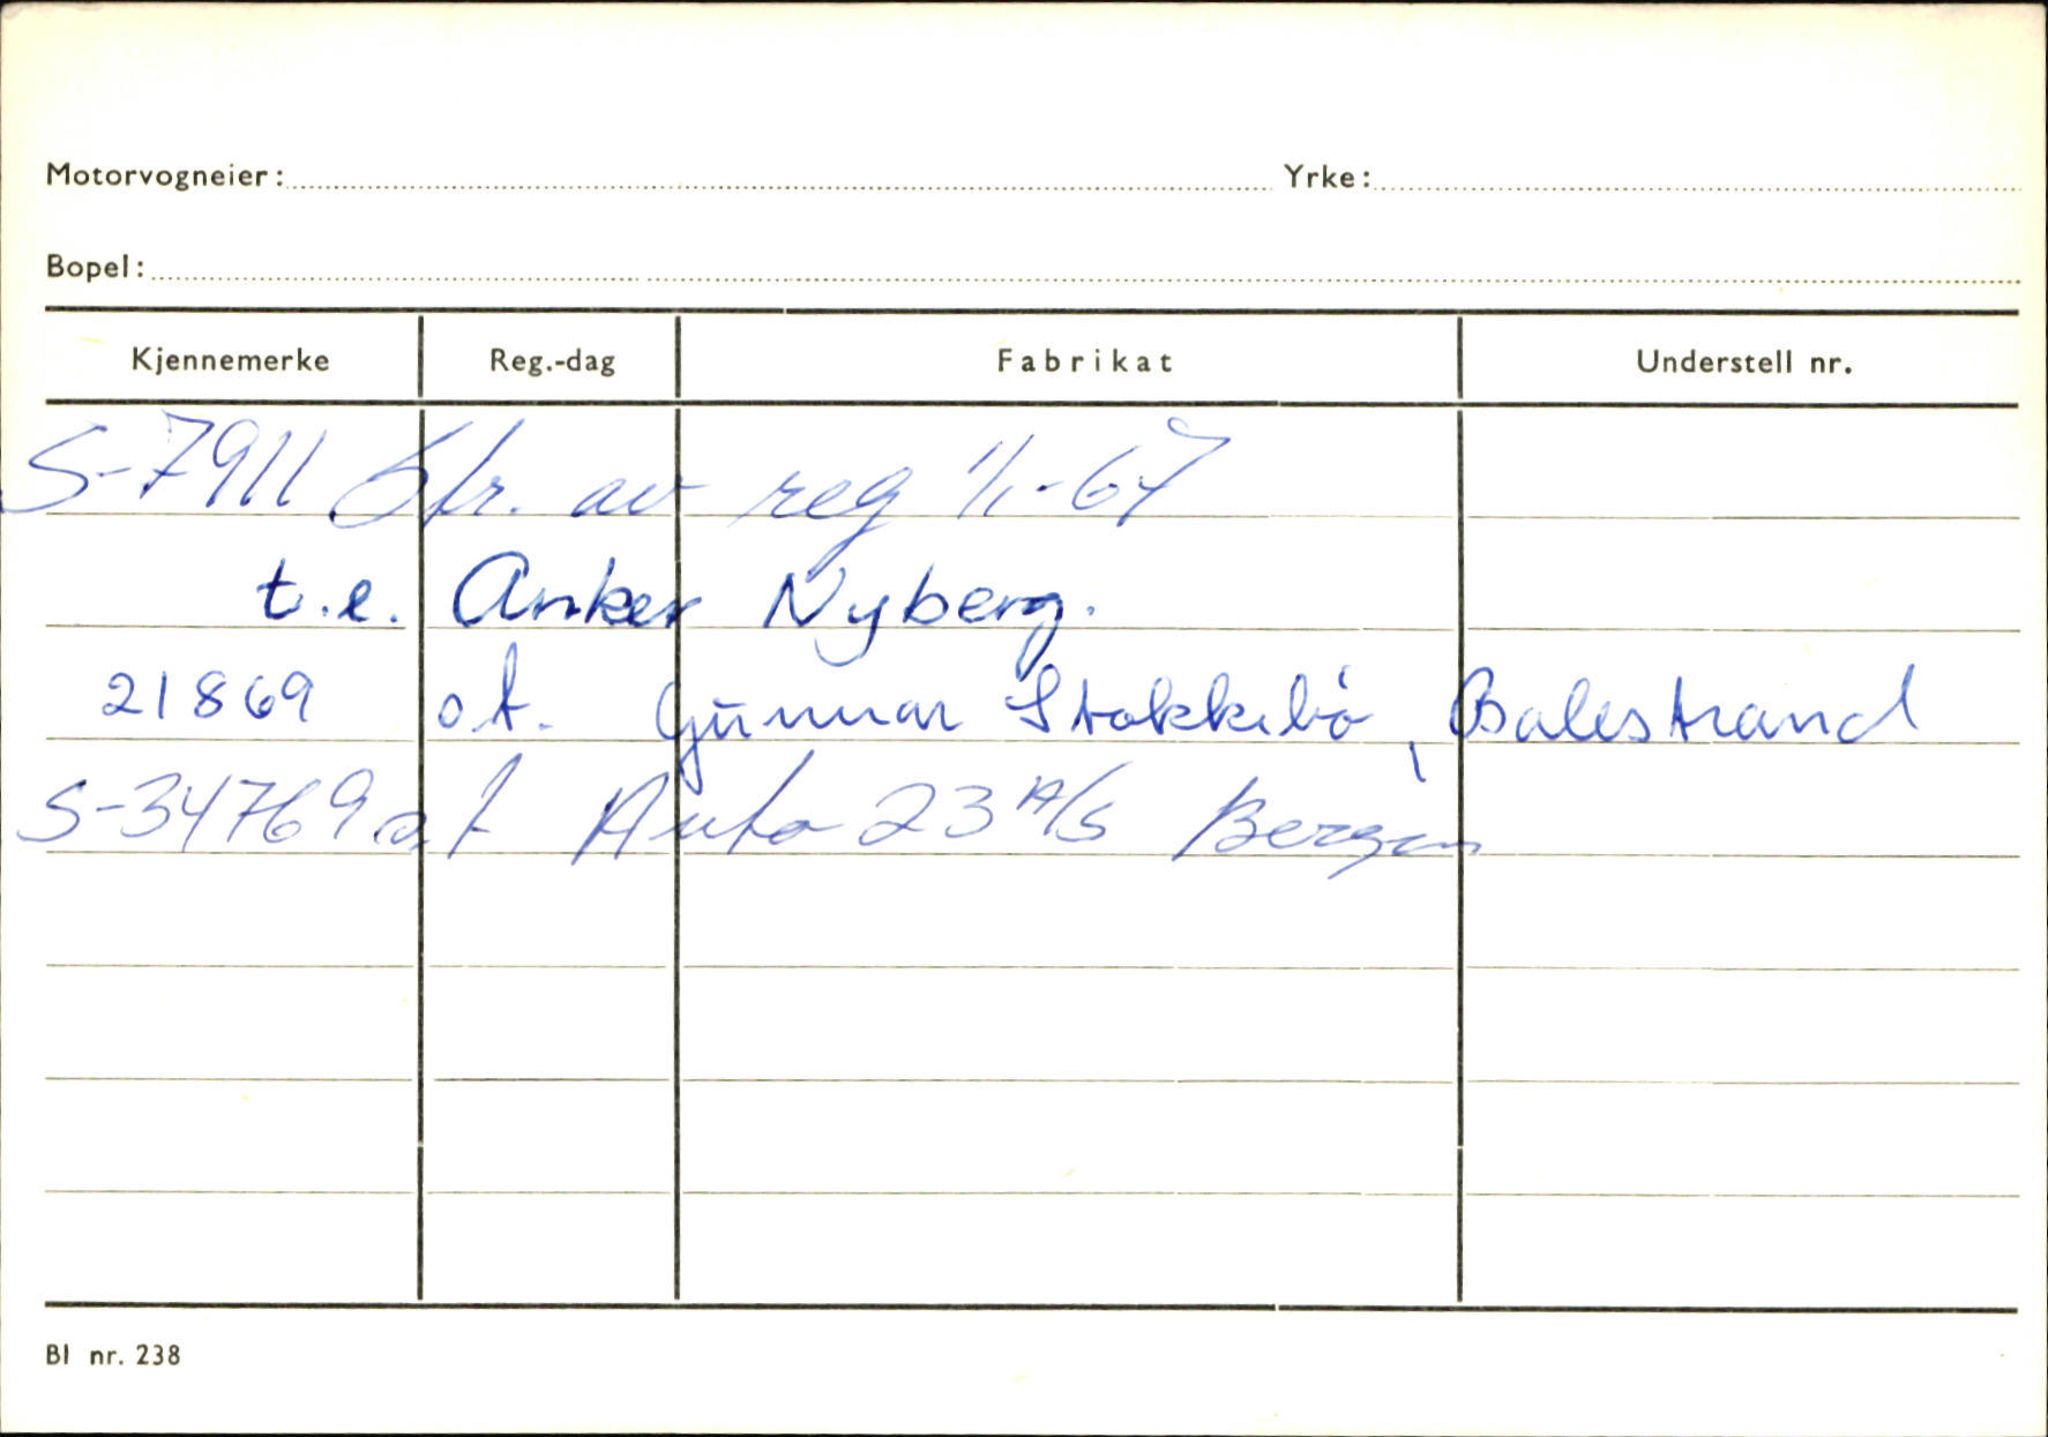 Motorvogneier: Yrke:
Bopel:
Kjennemerke Reg.-dag Fabrikat Understell nr.
S-7911 Str. av reg 1/1-67
t.e. Anker Nyberg.
21869 o.t. Gunnar Stokkebö, Balestrand
S-34769 o.t Auto 23 A/S Bergen
Bl nr. 238